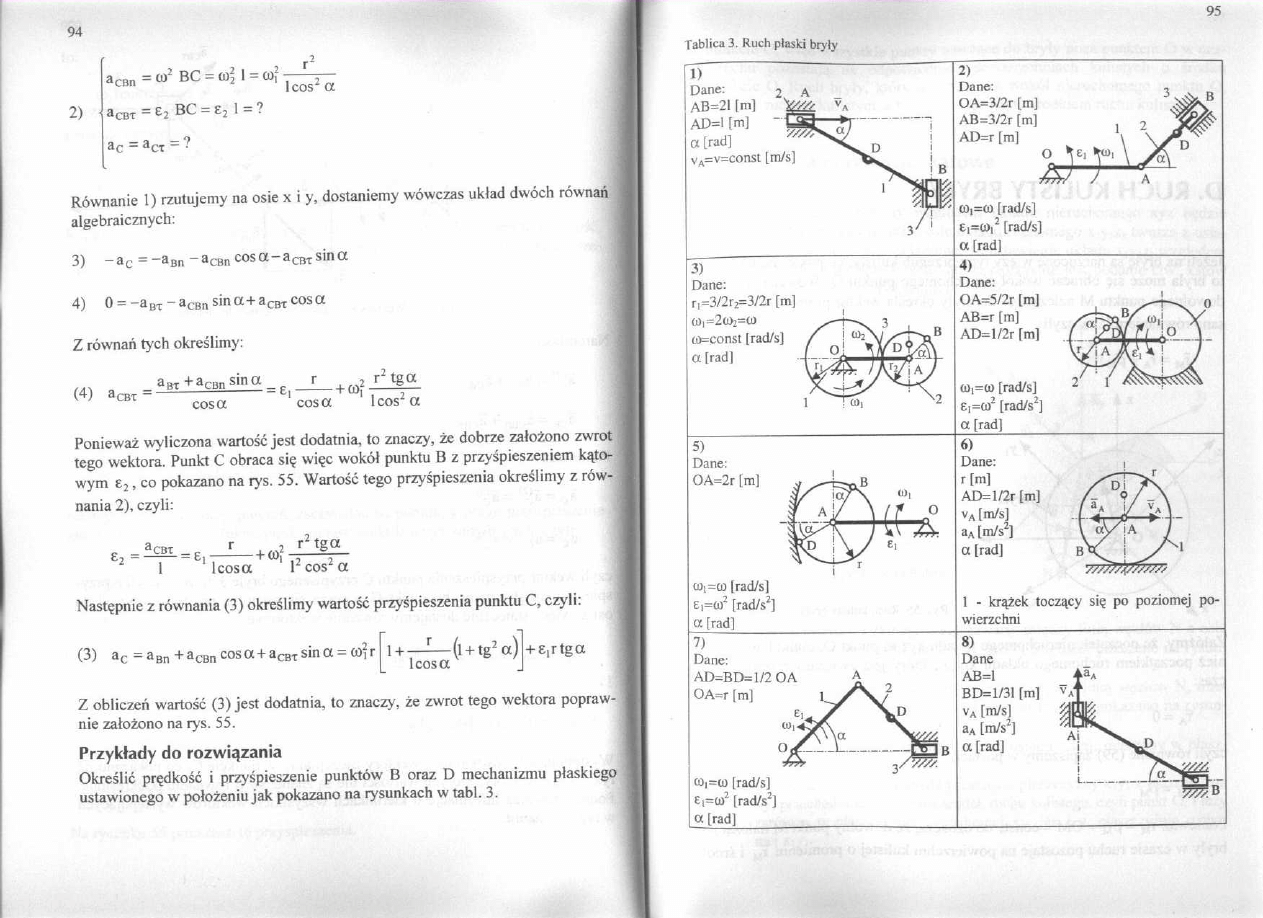 94
2) a_CBn = ω² BC = ω₂² l = ω₁² r² / (l cos² α)
a_CBτ = ε₂ BC = ε₂ l = ?
a_C = a_Cτ = ?
Równanie 1) rzutujemy na osie x i y, dostaniemy wówczas układ dwóch równań
algebraicznych:
3) −a_C = −a_Bn − a_CBn cos α − a_CBτ sin α
4) 0 = −a_Bτ − a_CBn sin α + a_CBτ cos α
Z równań tych określimy:
(4) a_CBτ = (a_Bτ + a_CBn sin α) / cos α = ε₁ r / cos α + ω₁² r² tg α / (l cos² α)
Ponieważ wyliczona wartość jest dodatnia, to znaczy, że dobrze założono zwrot
tego wektora. Punkt C obraca się więc wokół punktu B z przyśpieszeniem kąto-
wym ε₂, co pokazano na rys. 55. Wartość tego przyśpieszenia określimy z rów-
nania 2), czyli:
ε₂ = a_CBτ / l = ε₁ r / (l cos α) + ω₁² r² tg α / (l² cos² α)
Następnie z równania (3) określimy wartość przyśpieszenia punktu C, czyli:
(3) a_C = a_Bn + a_CBn cos α + a_CBτ sin α = ω₁² r [1 + r / (l cos α) (1 + tg² α)] + ε₁ r tg α
Z obliczeń wartość (3) jest dodatnia, to znaczy, że zwrot tego wektora popraw-
nie założono na rys. 55.
Przykłady do rozwiązania
Określić prędkość i przyśpieszenie punktów B oraz D mechanizmu płaskiego
ustawionego w położeniu jak pokazano na rysunkach w tabl. 3.
95
Tablica 3. Ruch płaski bryły
1)
Dane:
AB=2l [m]
AD=l [m]
α [rad]
v_A=v=const [m/s]
2 A v_A
α
D
B
1
3
2)
Dane:
OA=3/2r [m]
AB=3/2r [m]
AD=r [m]
ω₁=ω [rad/s]
ε₁=ω₁² [rad/s²]
α [rad]
3 B
1 2
D
O ε₁ ω₁ α
A
3)
Dane:
r₁=3/2r₂=3/2r [m]
ω₁=2ω₂=ω
ω=const [rad/s]
α [rad]
3
ω₂ B
O D α
r₁ r₂ A
1 ω₁ 2
4)
Dane:
OA=5/2r [m]
AB=r [m]
AD=1/2r [m]
ω₁=ω [rad/s]
ε₁=ω² [rad/s²]
α [rad]
0
B
α D ω₁ O
r A ε₁
2 1
5)
Dane:
OA=2r [m]
ω₁=ω [rad/s]
ε₁=ω² [rad/s²]
α [rad]
B
α ω₁
A O
α
D ε₁
r
6)
Dane:
r [m]
AD=1/2r [m]
v_A [m/s]
a_A [m/s²]
α [rad]
r
D
a_A v_A
α A
B 1
1 - krążek toczący się po poziomej po-
wierzchni
7)
Dane:
AD=BD=1/2 OA
OA=r [m]
ω₁=ω [rad/s]
ε₁=ω² [rad/s²]
α [rad]
A
1 2
ε₁ D
ω₁ α
O B
3
8)
Dane
AB=l
BD=1/3l [m]
v_A [m/s]
a_A [m/s²]
α [rad]
a_A
v_A
A
D
α
B